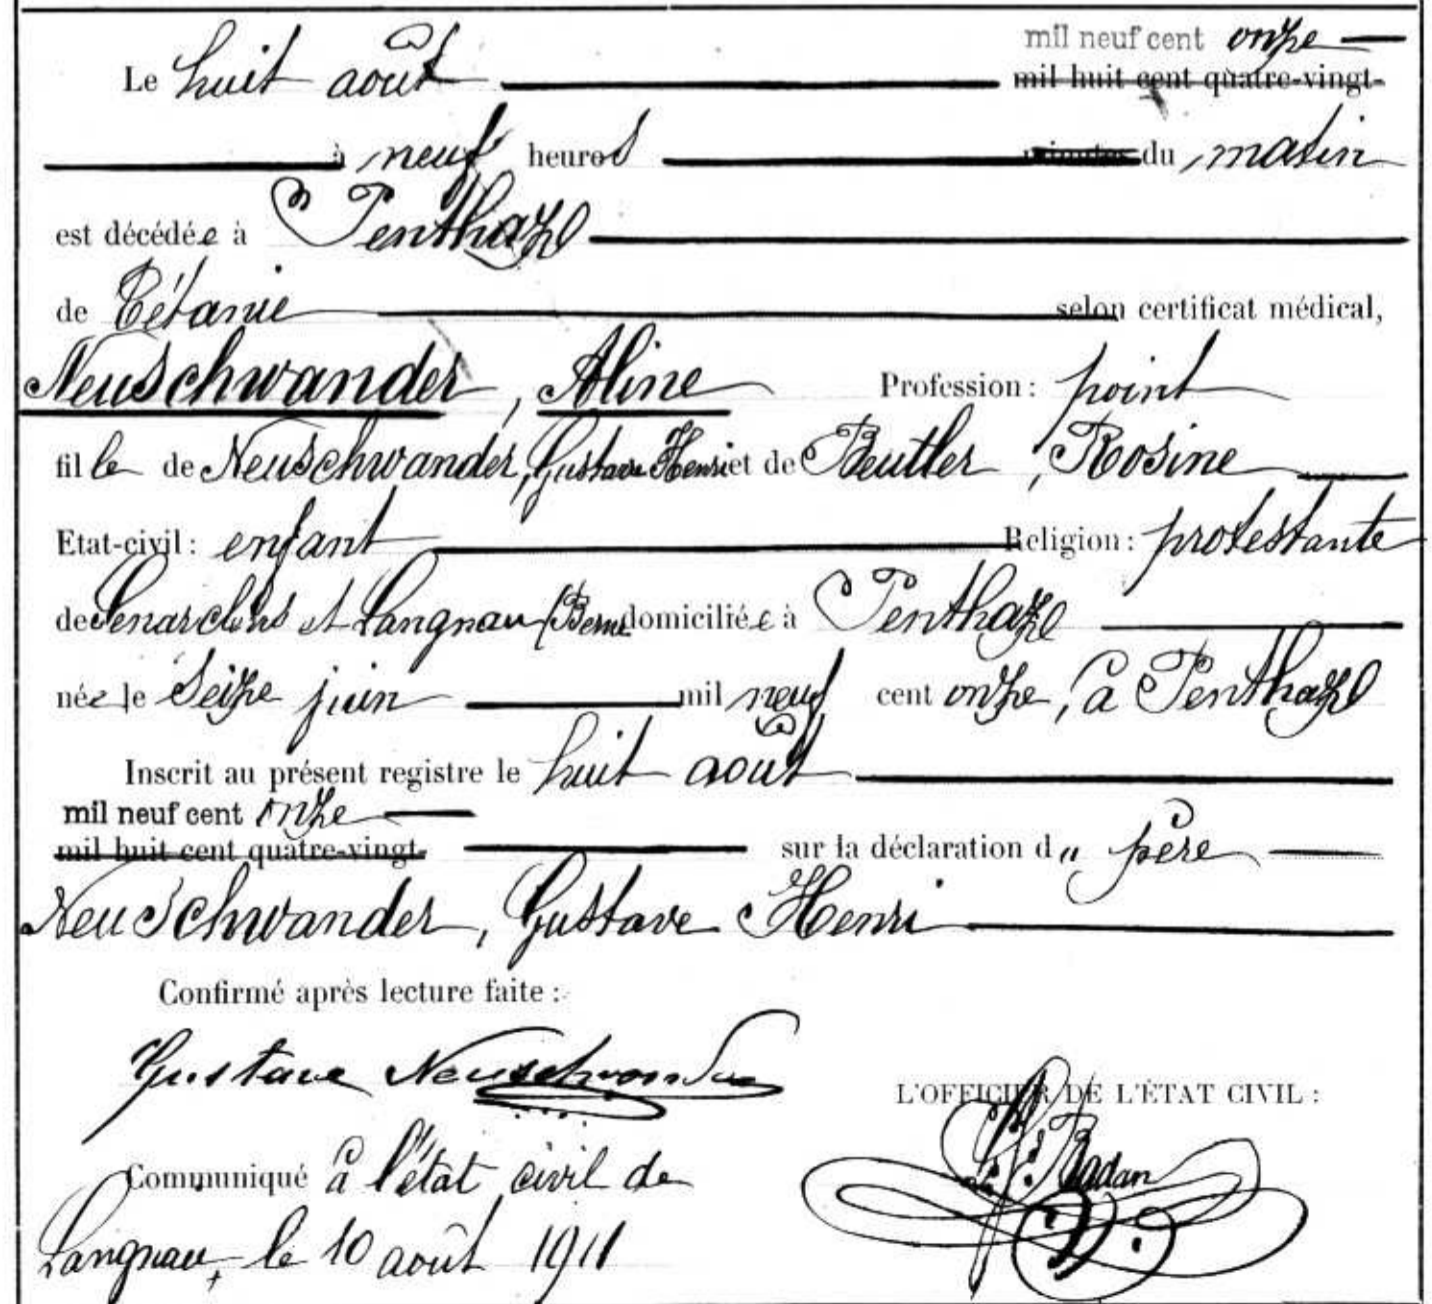 mil neuf cent onze
Le huit août mil huit cent quatre-vingt-
à neuf heures minutes du matin
est décédée à Penthaz
de Tétanie selon certificat médical,
Neuschwander, Aline Profession : point
fille de Neuschwander, Gustave Henri et de Beutler, Rosine
Etat-civil : enfant Religion : protestante
de Senarclens et Langnau (Berne domiciliée à Penthaz
née le seize juin mil neuf cent onze, à Penthaz
Inscrit au présent registre le huit août
mil neuf cent onze
mil huit cent quatre-vingt- sur la déclaration du père
Neuschwander, Gustave Henri
Confirmé après lecture faite :
Gustave Neuschwander
L'OFFICIER DE L'ÉTAT CIVIL :
Badan
Communiqué à l'état civil de
Langnau, le 10 août 1911